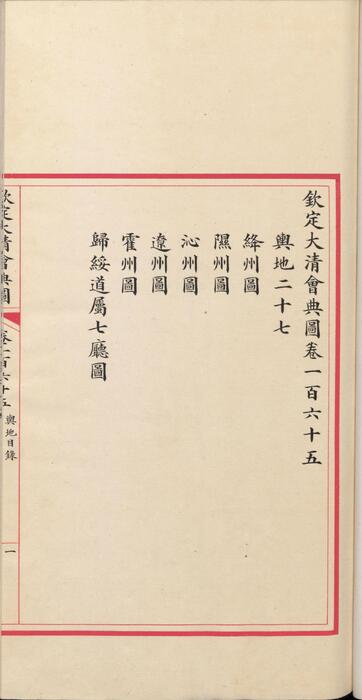 欽定大清會典圖卷一百六十五
輿地二十七
絳州圖
隰州圖
沁州圖
遼州圖
霍州圖
歸綏道屬七廳圖
欽定大清會典圖
卷一百六十五
輿地目錄
一